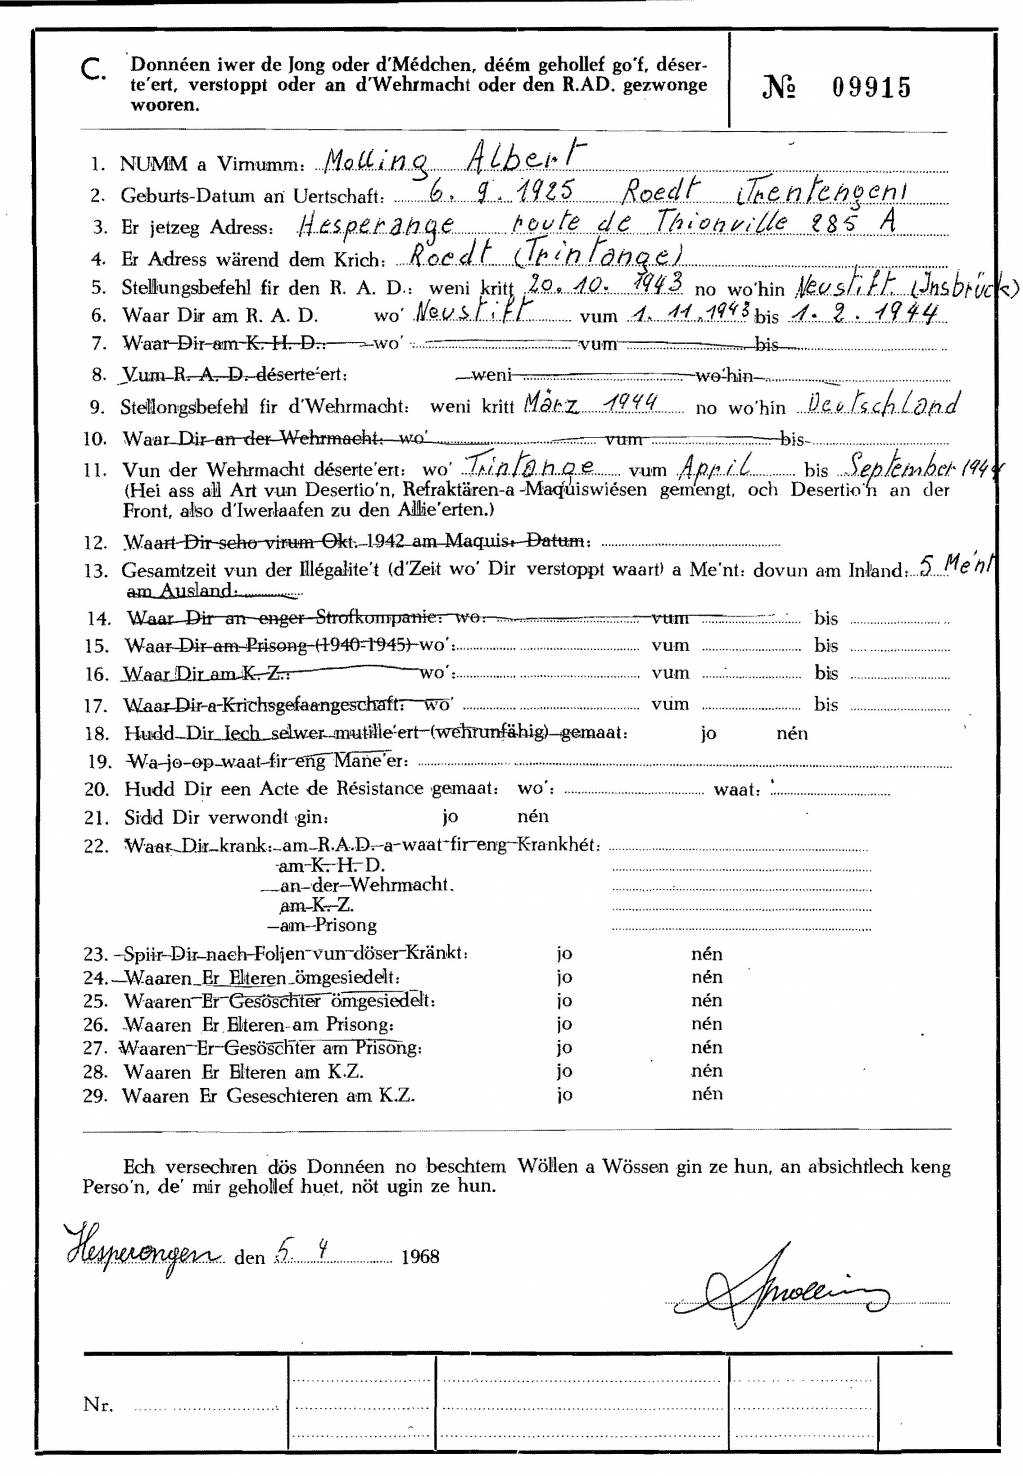 C. Donnéen iwer de Jong oder d'Médchen, déém gehollef go'f, déser-
te'ert, verstoppt oder an d'Wehrmacht oder den R.AD. gezwonge
wooren.
№ 09915
1. NUMM a Virnumm: Molling Albert
2. Geburts-Datum an Uertschaft: 6. 9. 1925 Roedt (Trentengen)
3. Er jetzeg Adress: Hesperange route de Thionville 285 A
4. Er Adress wärend dem Krich: Roedt (Trintange)
5. Stellungsbefehl fir den R. A. D.: weni kritt 20. 10. 1943 no wo'hin Neustift (Insbrück)
6. Waar Dir am R. A. D. wo' Neustift vum 1. 11. 1943 bis 1. 2. 1944
7. Waar Dir am K. H. D.: wo': vum bis
8. Vum R. A. D. déserte'ert: weni wo'hin
9. Stellongsbefehl fir d'Wehrmacht: weni kritt März 1944 no wo'hin Deutschland
10. Waar Dir an der Wehrmacht: wo' vum bis
11. Vun der Wehrmacht déserte'ert: wo' Trintange vum April bis September 1944
(Hei ass all Art vun Desertio'n, Refraktären-a-Maquiswiésen gemengt, och Desertio'n an der
Front, also d'Iwerlaafen zu den Allie'erten.)
12. Waart Dir scho virum Okt. 1942 am Maquis: Datum:
13. Gesamtzeit vun der Illégalite't (d'Zeit wo' Dir verstoppt waart) a Me'nt: dovun am Inland: 5 Me'nt
am Ausland:
14. Waar Dir an enger Strofkompanie: wo: vum bis
15. Waar Dir am Prisong (1940-1945) wo': vum bis
16. Waar Dir am K. Z.: wo': vum bis
17. Waar Dir a Krichsgefaangeschaft: wo' vum bis
18. Hudd Dir Iech selwer mutille'ert (wehrunfähig) gemaat: jo nén
19. Wa jo op waat fir eng Mane'er:
20. Hudd Dir een Acte de Résistance gemaat: wo': waat:
21. Sidd Dir verwondt gin: jo nén
22. Waar Dir krank: am R.A.D. a waat fir eng Krankhét:
am K. H. D.
an der Wehrmacht.
am K. Z.
am Prisong
23. Spiir Dir nach Foljen vun döser Kränkt: jo nén
24. Waaren Er Elteren ömgesiedelt: jo nén
25. Waaren Er Gesöschter ömgesiedelt: jo nén
26. Waaren Er Elteren am Prisong: jo nén
27. Waaren Er Gesöschter am Prisong: jo nén
28. Waaren Er Elteren am K.Z. jo nén
29. Waaren Er Geseschteren am K.Z. jo nén
Ech versechren dös Donnéen no beschtem Wöllen a Wössen gin ze hun, an absichtlech keng
Perso'n, de' mir gehollef huet, nöt ugin ze hun.
Hesperengen den 5. 4 1968
AMolling
Nr.